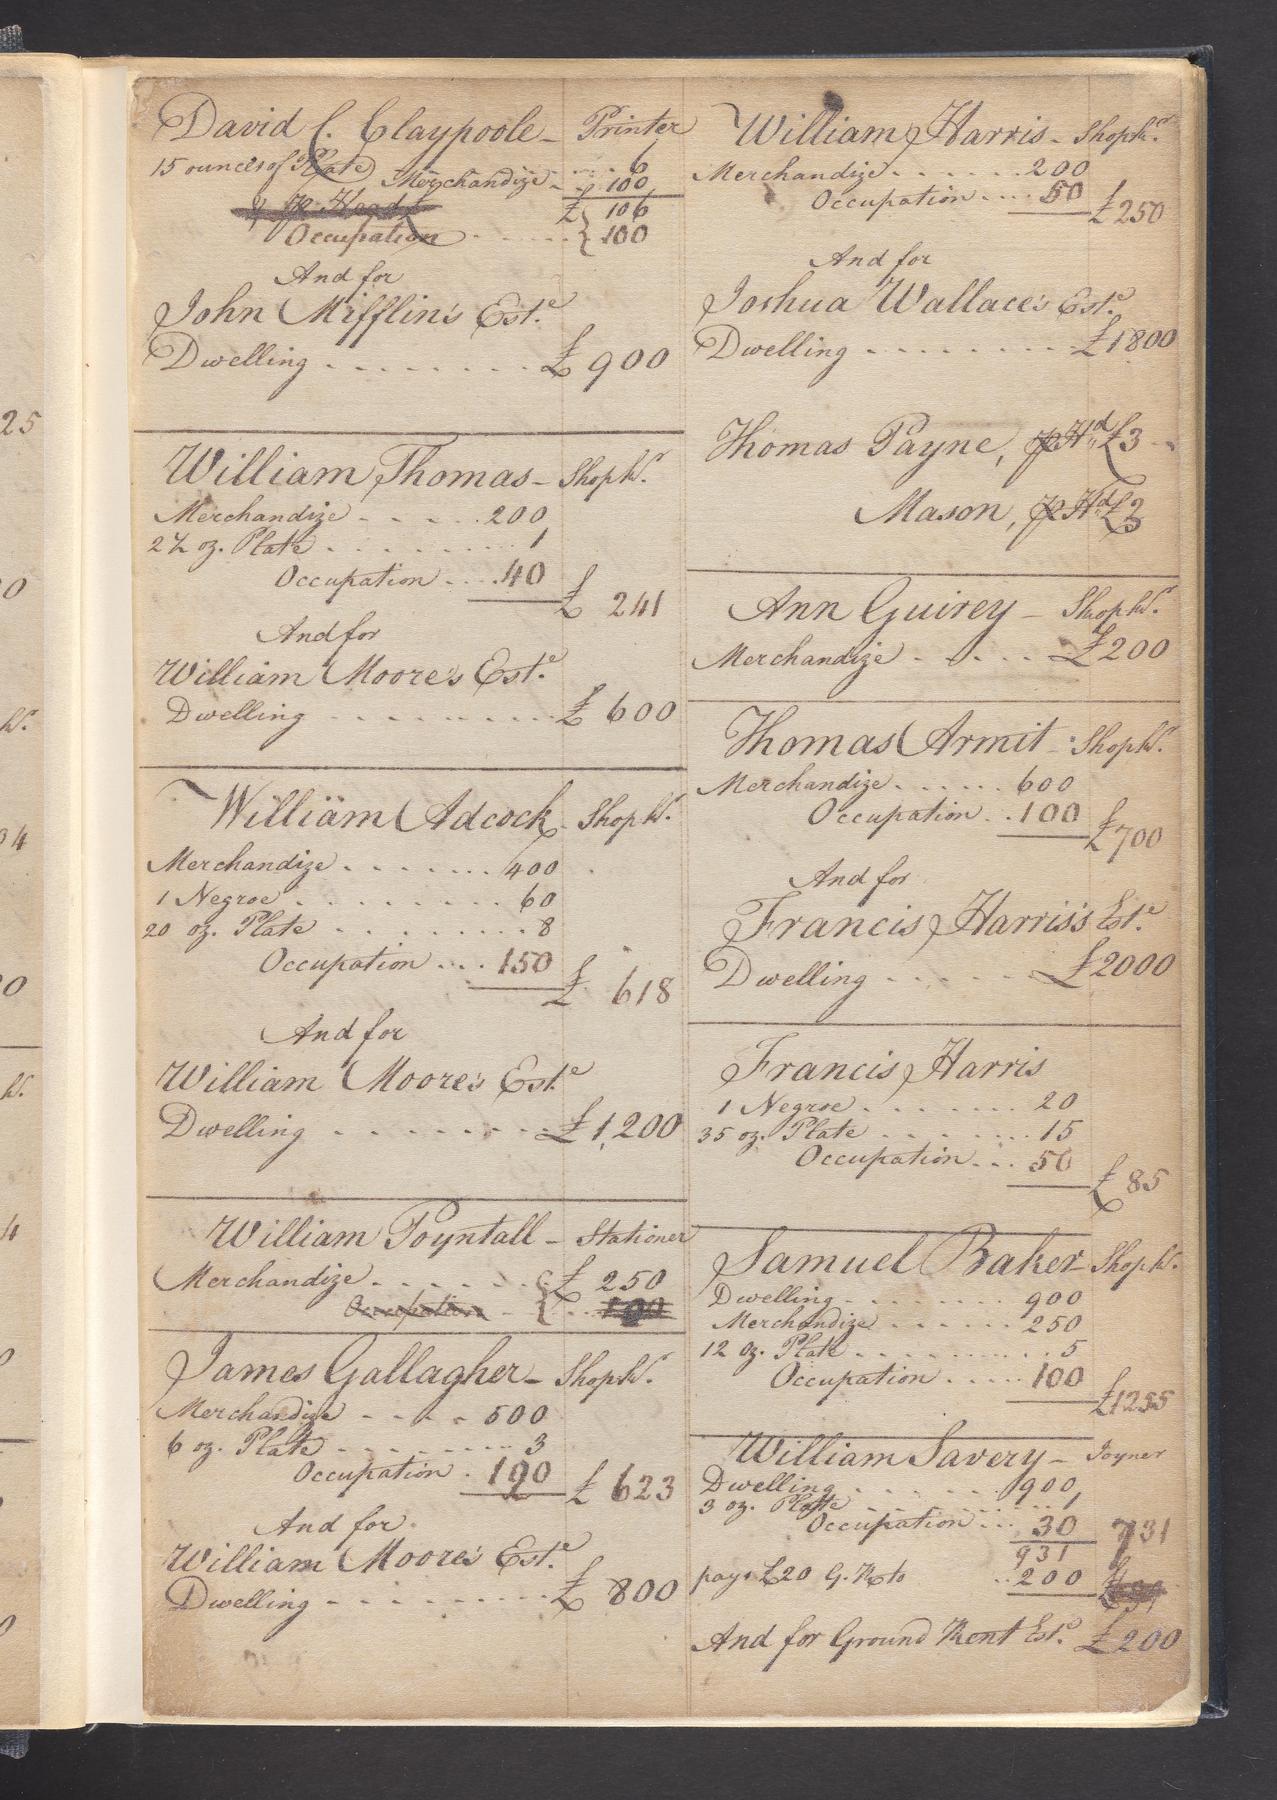 David C. Claypoole - Printer
15 ounces of Plate . . . . 6
Merchandize - - £ 100
£ 106
Occupation . . . . . . 100
And for
John Mifflin's Est.e
Dwelling . . . . . . . . £ 900
William Thomas - Shopkr.
Merchandize - - . . . 200
2½ oz. Plate . . . . . . . . 1
Occupation . . . 40
£ 241
And for
William Moore's Est.e
Dwelling . . . . . . . . . £ 600
William Adcock - Shopkr.
Merchandize . . . . . . . 400
1 Negroe . . . . . . . . . 60
20 oz. Plate . . . . . . . . . 8
Occupation . . . 150
£ 618
And for
William Moore's Est.e
Dwelling . . . . . . . . . £ 1,200
William Poyntall - Stationer
Merchandize . . . . . . . £ 250
Occupation - . . 100
James Gallagher - Shopkr.
Merchandize - - - - 500
6 oz. Plate - . . . . . . . . 3
Occupation . 120
£ 623
And for
William Moore's Est.e
Dwelling - - - . . . . . . £ 800
25
0
kr.
04
0
kr.
4
William Harris - Shopkr.
Merchandize . . . . . . 200
Occupation . . . 50
£ 250
And for
Joshua Wallace's Est.e
Dwelling - . . . . . . . £ 1800
Thomas Payne, pr Hd £3
Mason, pr Hd £3
Ann Guirey - Shopkr.
Merchandize . . . . . £ 200
Thomas Armit - Shopkr.
Merchandize . . . . . . 600
Occupation . . 100
£ 700
And for
Francis Harris's Est.e
Dwelling . . . . . . £ 2000
Francis Harris
1 Negroe . . . . . . . 20
35 oz. Plate . . . . . . . . 15
Occupation . . . 50
£ 85
Samuel Baker - Shopkr.
Dwelling . . . . . . . . . 900
Merchandize . . . . . . . 250
12 oz. Plate . . . . . . . . . . 5
Occupation . . . . . 100
£ 1255
William Savery - Joyner
Dwelling . . . . . . 900
3 oz. Plate . . . . . . . . . . 1
Occupation . . . 30 731
931
pays £20 G. Rt to . . 200
And for Ground Rent Est.e £ 200